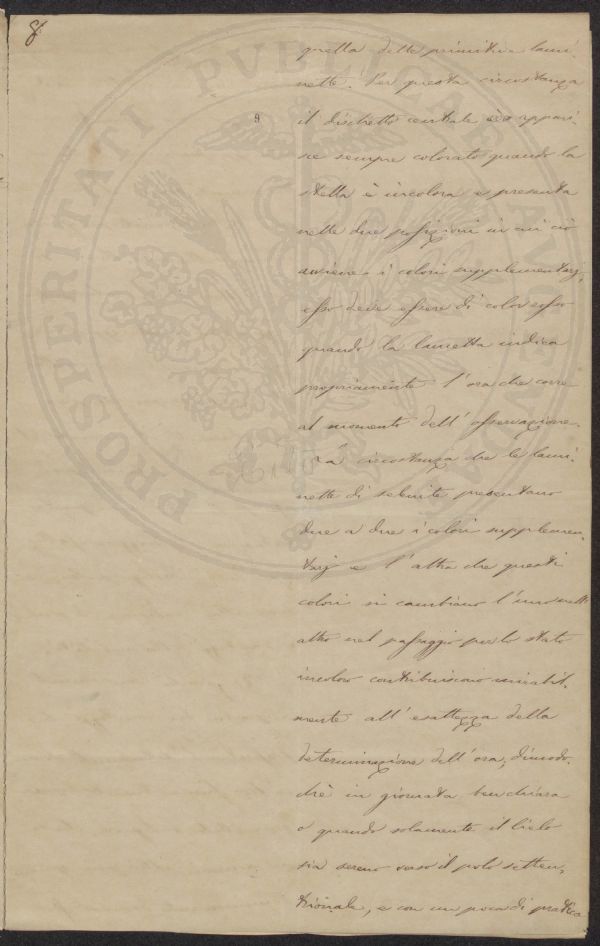 8
PROSPERITATI PUBLICAE AUGENDAE
9
quella delle primitive lami-
nette. Per questa circostanza
il dischetto centrale appari-
sce sempre colorato quando la
stella è incolora e presenta
nelle due posizioni in cui ciò
avviene i colori supplementarj,
esso deve essere di color
quando la lancetta indica
propriamente l'ora che corre
al momento dell'osservazione.
La circostanza che le lami-
nette di selenite presentano
due a due i colori supplemen-
tarj e l'altra che questi
colori si cambiano l'uno nell'
altro nel passaggio per lo stato
incoloro contribuiscono mirabil-
mente all'esattezza della
determinazione dell'ora, dimodo-
chè in giornata ben chiara
o quando solamente il Cielo
sia sereno verso il polo setten-
trionale, e con un poco di pratica